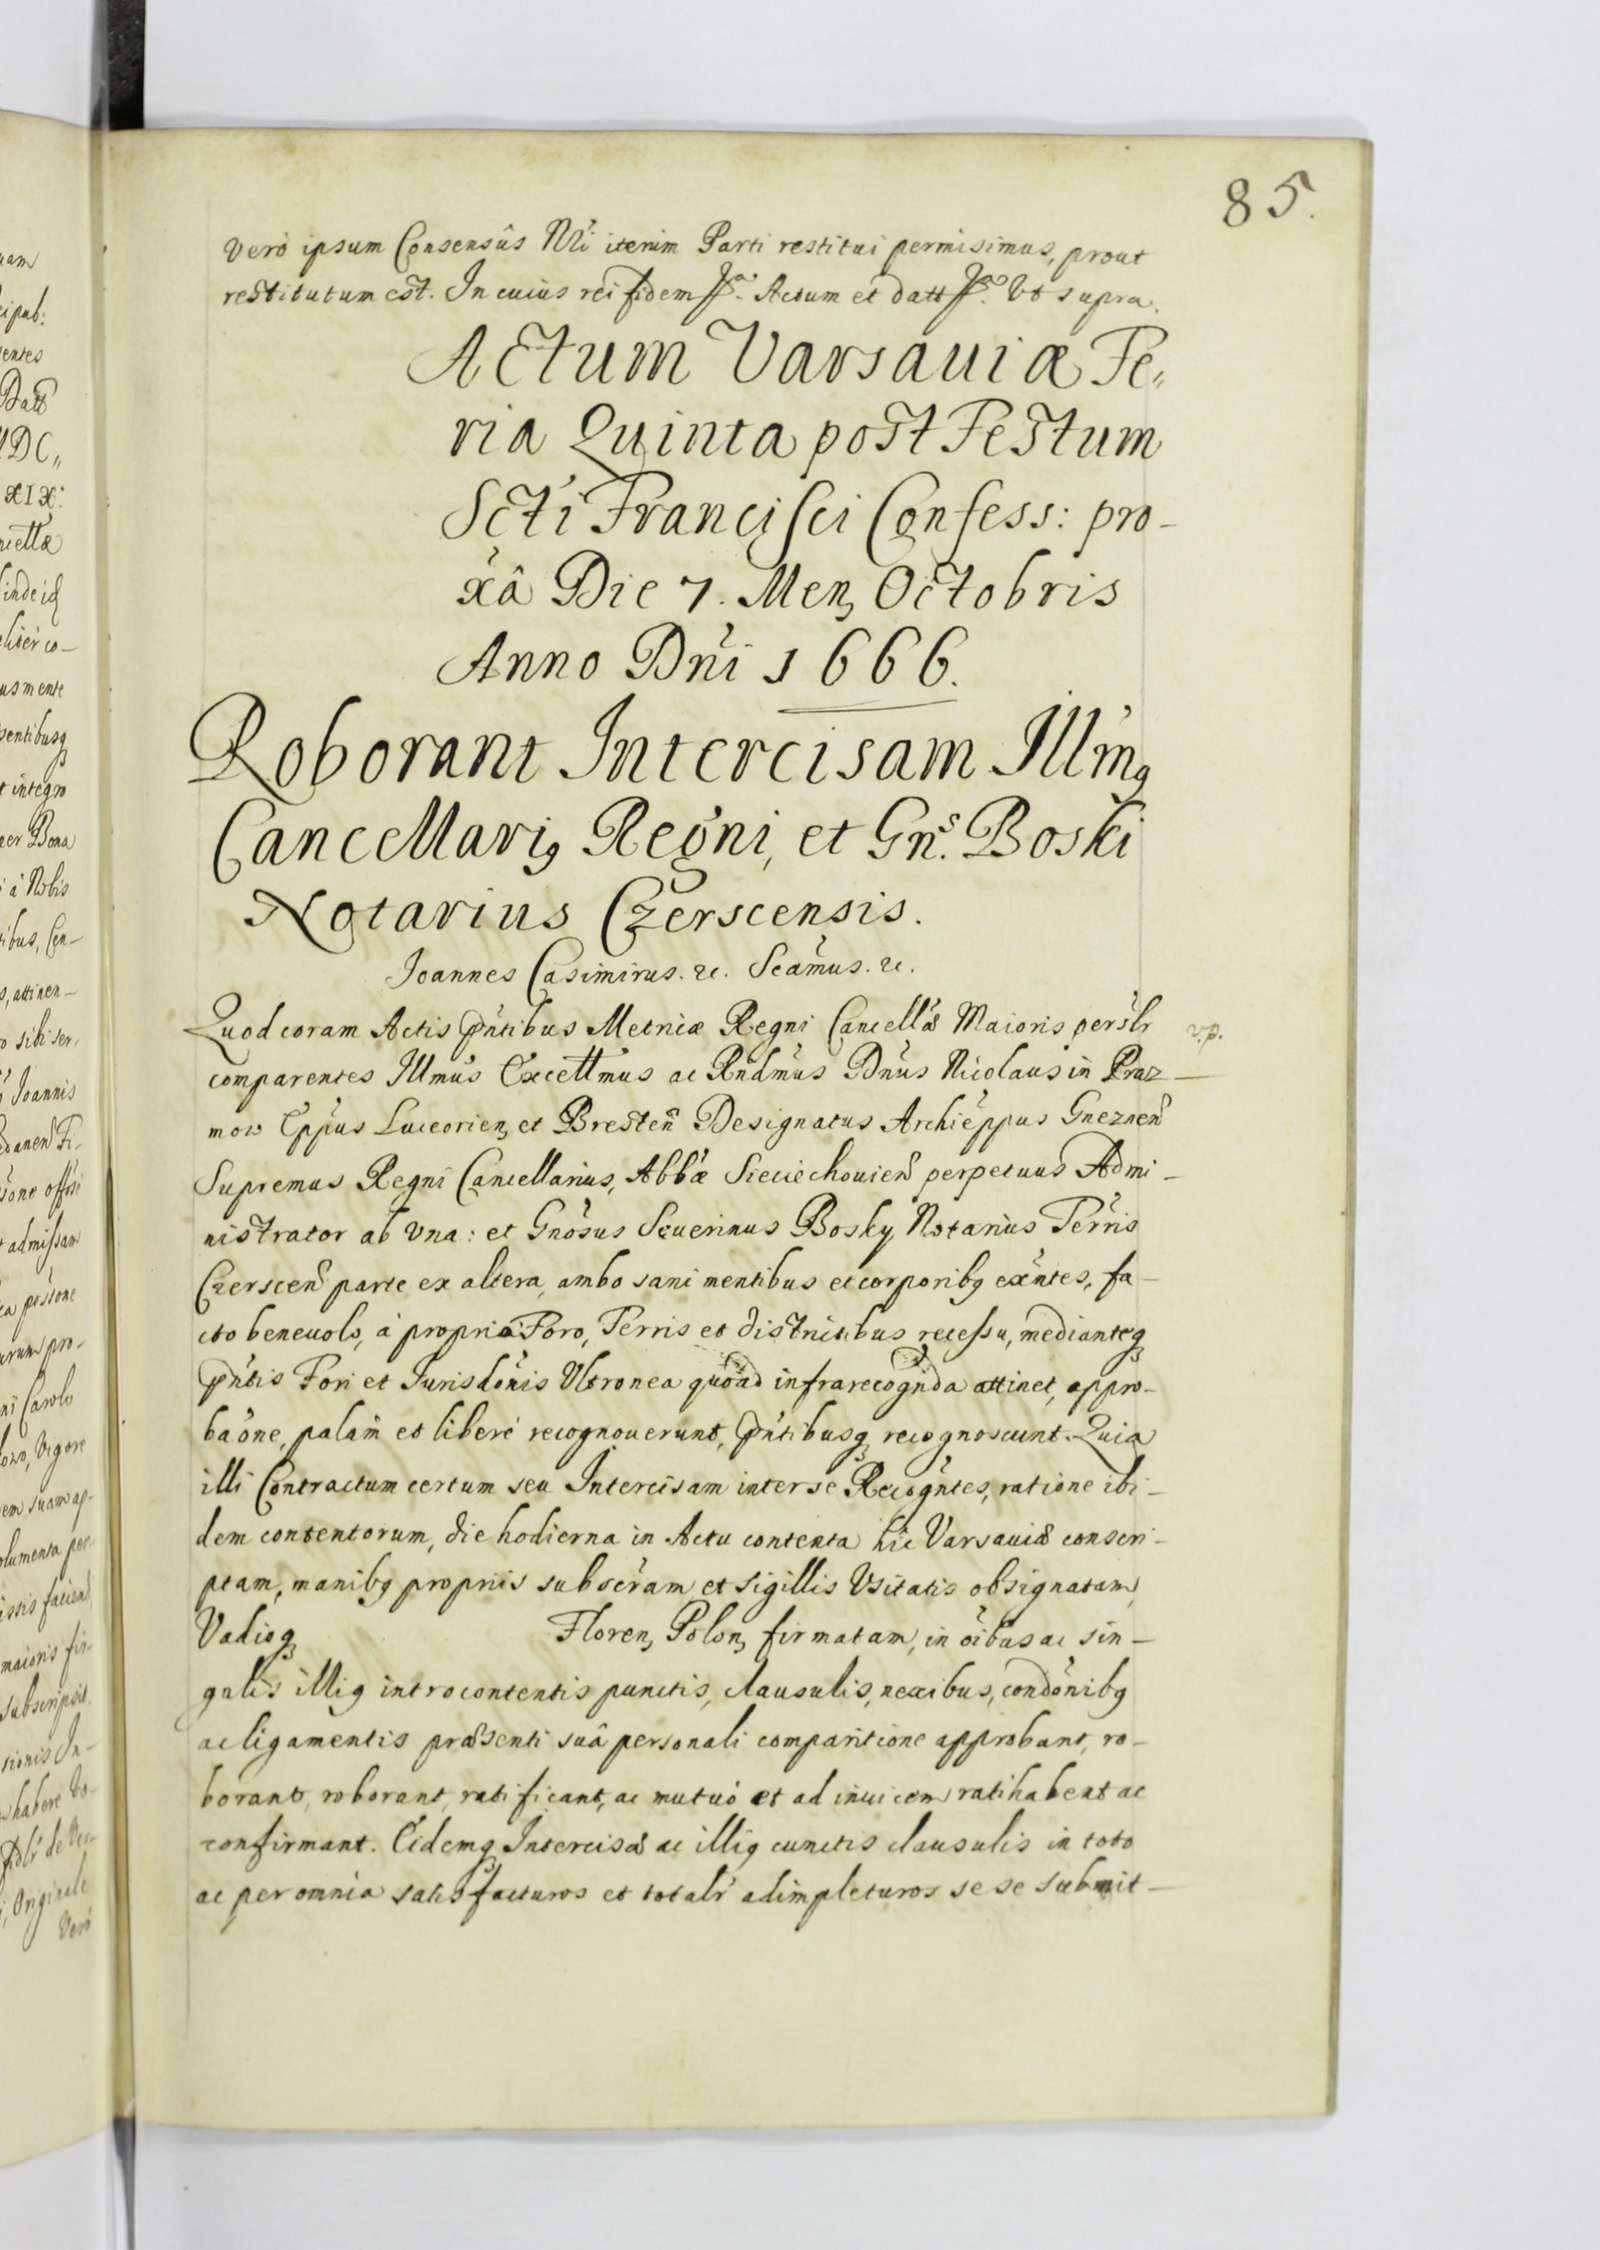 85.
Verò ipsum Consensûs Nri iterùm Parti restitui permisimus, prout
restitutum est. In cuius rei fidem Actum et datt Vt supra.
Actum Varsauiæ Fe„
ria Quinta post Festum
Scti Francisci Confess: pro-
xâ Die 7. Mens Octobris
Anno Dni 1666.
Roborant Intercisam Illmus
Cancellarius Regni, et Gns. Boski
Notarius Czerscensis.
Ioannes Casimirus. &c. Scamus. &c.
Quod coram Actis pntibus Metricæ Regni Cancellæ Maioris persslr
v.p.
comparentes Illmus Excellmus ac Rndmus Dnus Nicolaus in Praz-
mow Eppus Luceorien, et Bresten Designatus Archieppus Gneznen
Supremus Regni Cancellarius, Abbæ Sieciechouien perpetuus Admi-
nistrator ab Vna: et Gnosus Seuerinus Bosky Notarius Terris
Czerscen parte ex altera, ambo sani mentibus et corporibq exntes, fa-
cto beneuolo, à proprio Foro, Terris et districtibus recessu, medianteq
pntis Fori et Iurisdonis Vltronea quoad infrarecognda attinet, appro-
baone, palam et liberè recognouerunt, pntibusq recognoscunt. Quia
illi Contractum certum seu Intercisam inter se Recogntes, ratione ibi-
dem contentorum, die hodierna in Actu contenta hic Varsauiæ conscri-
ptam, manibq proprijs subscram et sigillis Vsitatis obsignatam,
Vadioq Floren, Polon, firmatam, in oibus ac sin-
gulis illiq introcontentis punctis, clausulis, nexibus, condonibq
ac ligamentis præsenti suâ personali comparitione approbant, ro-
borant, roborant, ratificant, ac mutuò et ad inuicem ratihabent ac
confirmant. Eidemq Intercisæ ac illiq cunctis clausulis in toto
ac per omnia satisfacturos et totalr adimpleturos sese submit-